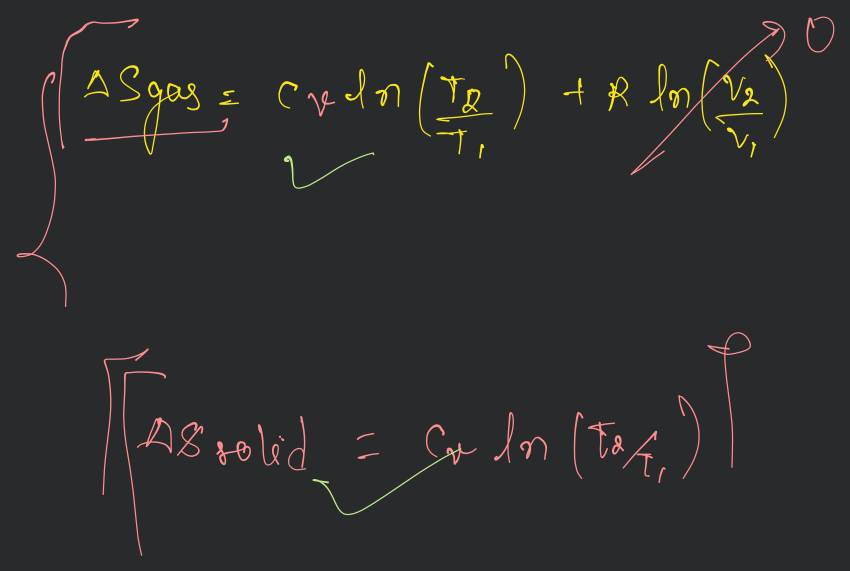 ΔSgas = Cv ln(T2/T1) + R ln(V2/V1) 0
ΔSsolid = Cv ln(T2/T1)